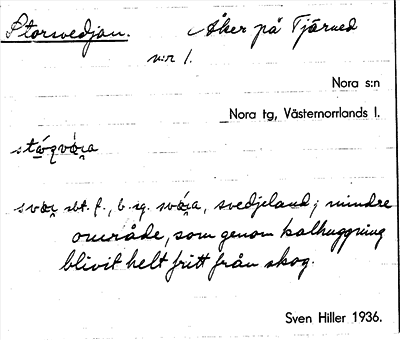 Storsvedjan. Åker på Tjärned
n:r 1.
Nora s:n
Nora tg, Västernorrlands l.
svedjeland; mindre
område, som genom kalhuggning
blivit helt fritt från skog.
Sven Hiller 1936.